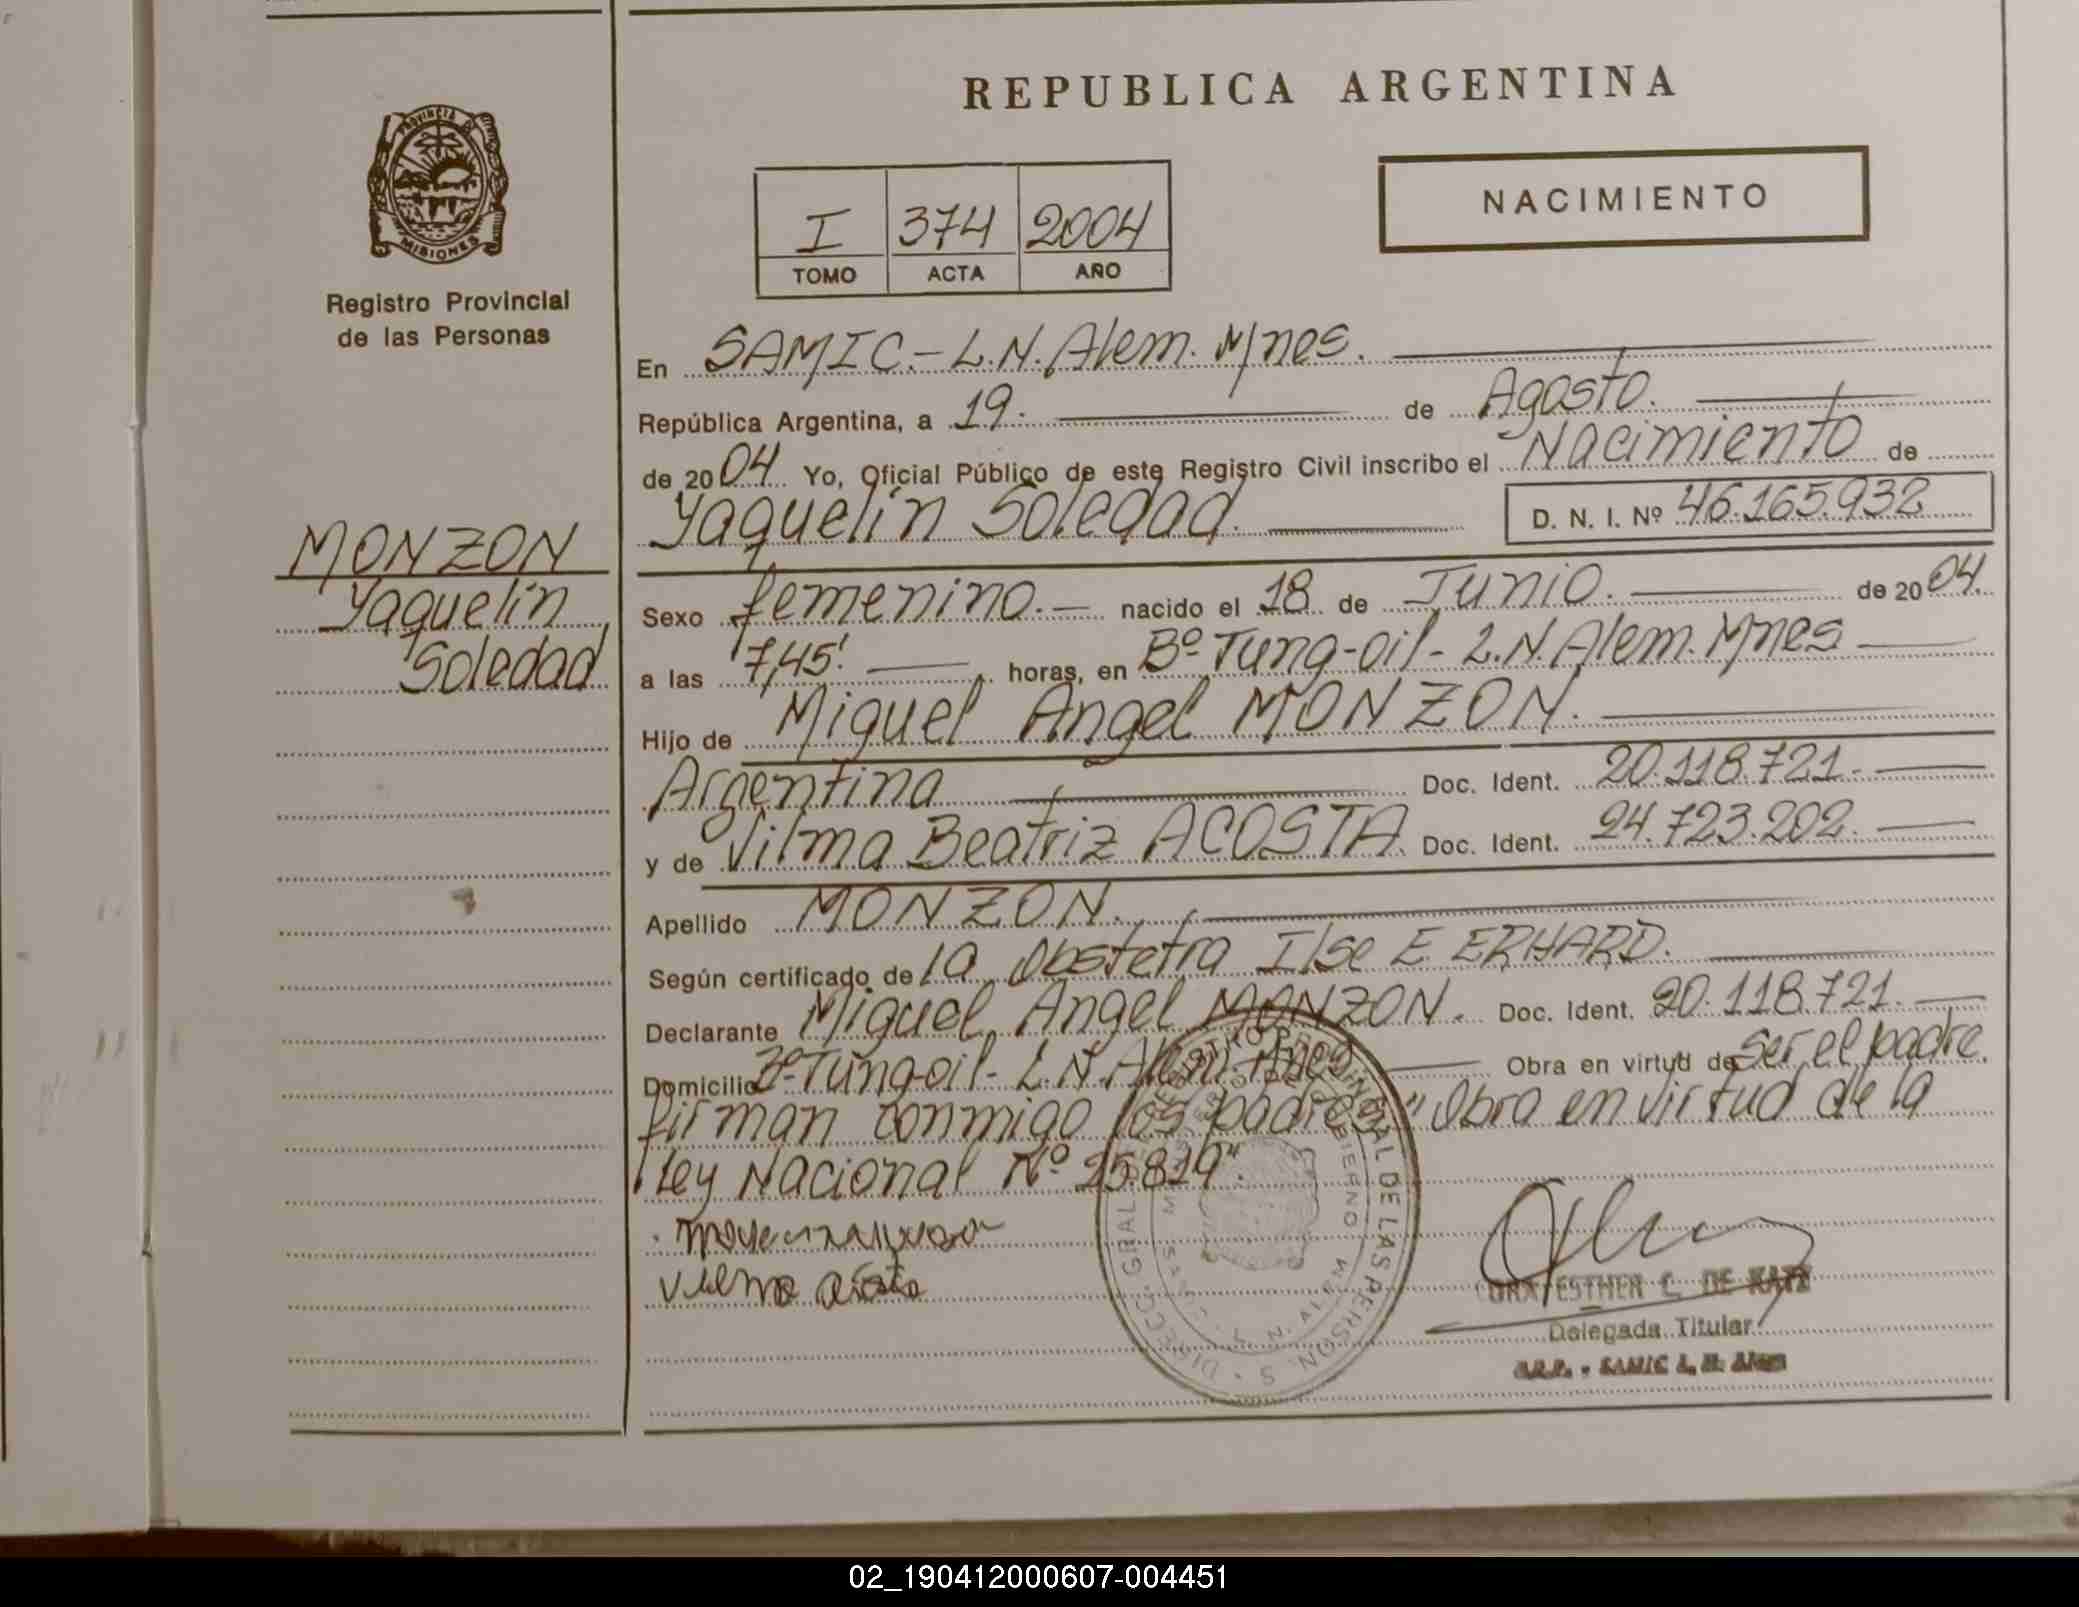 REPUBLICA ARGENTINA
PROVINCIA DE
MISIONES
Registro Provincial
de las Personas
I 374 2004
TOMO ACTA AÑO
NACIMIENTO
En SAMIC.- L.N. Alem. Mnes.
República Argentina, a 19. de Agosto.
de 2004. Yo, Oficial Público de este Registro Civil inscribo el Nacimiento de
Yaquelin Soledad. D. N. I. Nº 46.165.932
MONZON
Yaquelin
Soledad
Sexo femenino.- nacido el 18 de Junio. de 2004.
a las 7,45'. horas, en Bº Tung-oil- L.N. Alem. Mnes
Hijo de Miguel Angel MONZON.
Argentina Doc. Ident. 20.118.721.
y de Vilma Beatriz ACOSTA. Doc. Ident. 24.723.202.
Apellido MONZON.
Según certificado de la Obstetra Ilse E. ERHARD.
Declarante Miguel Angel MONZON. Doc. Ident. 20.118.721.
Domicilio Bº Tung-oil- L.N. Alem. Mnes Obra en virtud de Ser el padre.
firman conmigo los padres "Obra en virtud de la
Ley Nacional Nº 25.819".
Vilma Acosta
ESTHER C. DE KATZ
Delegada Titular
SAMIC L. N. Alem
DIRECC. GRAL. DE LAS PERSONAS
02_190412000607-004451